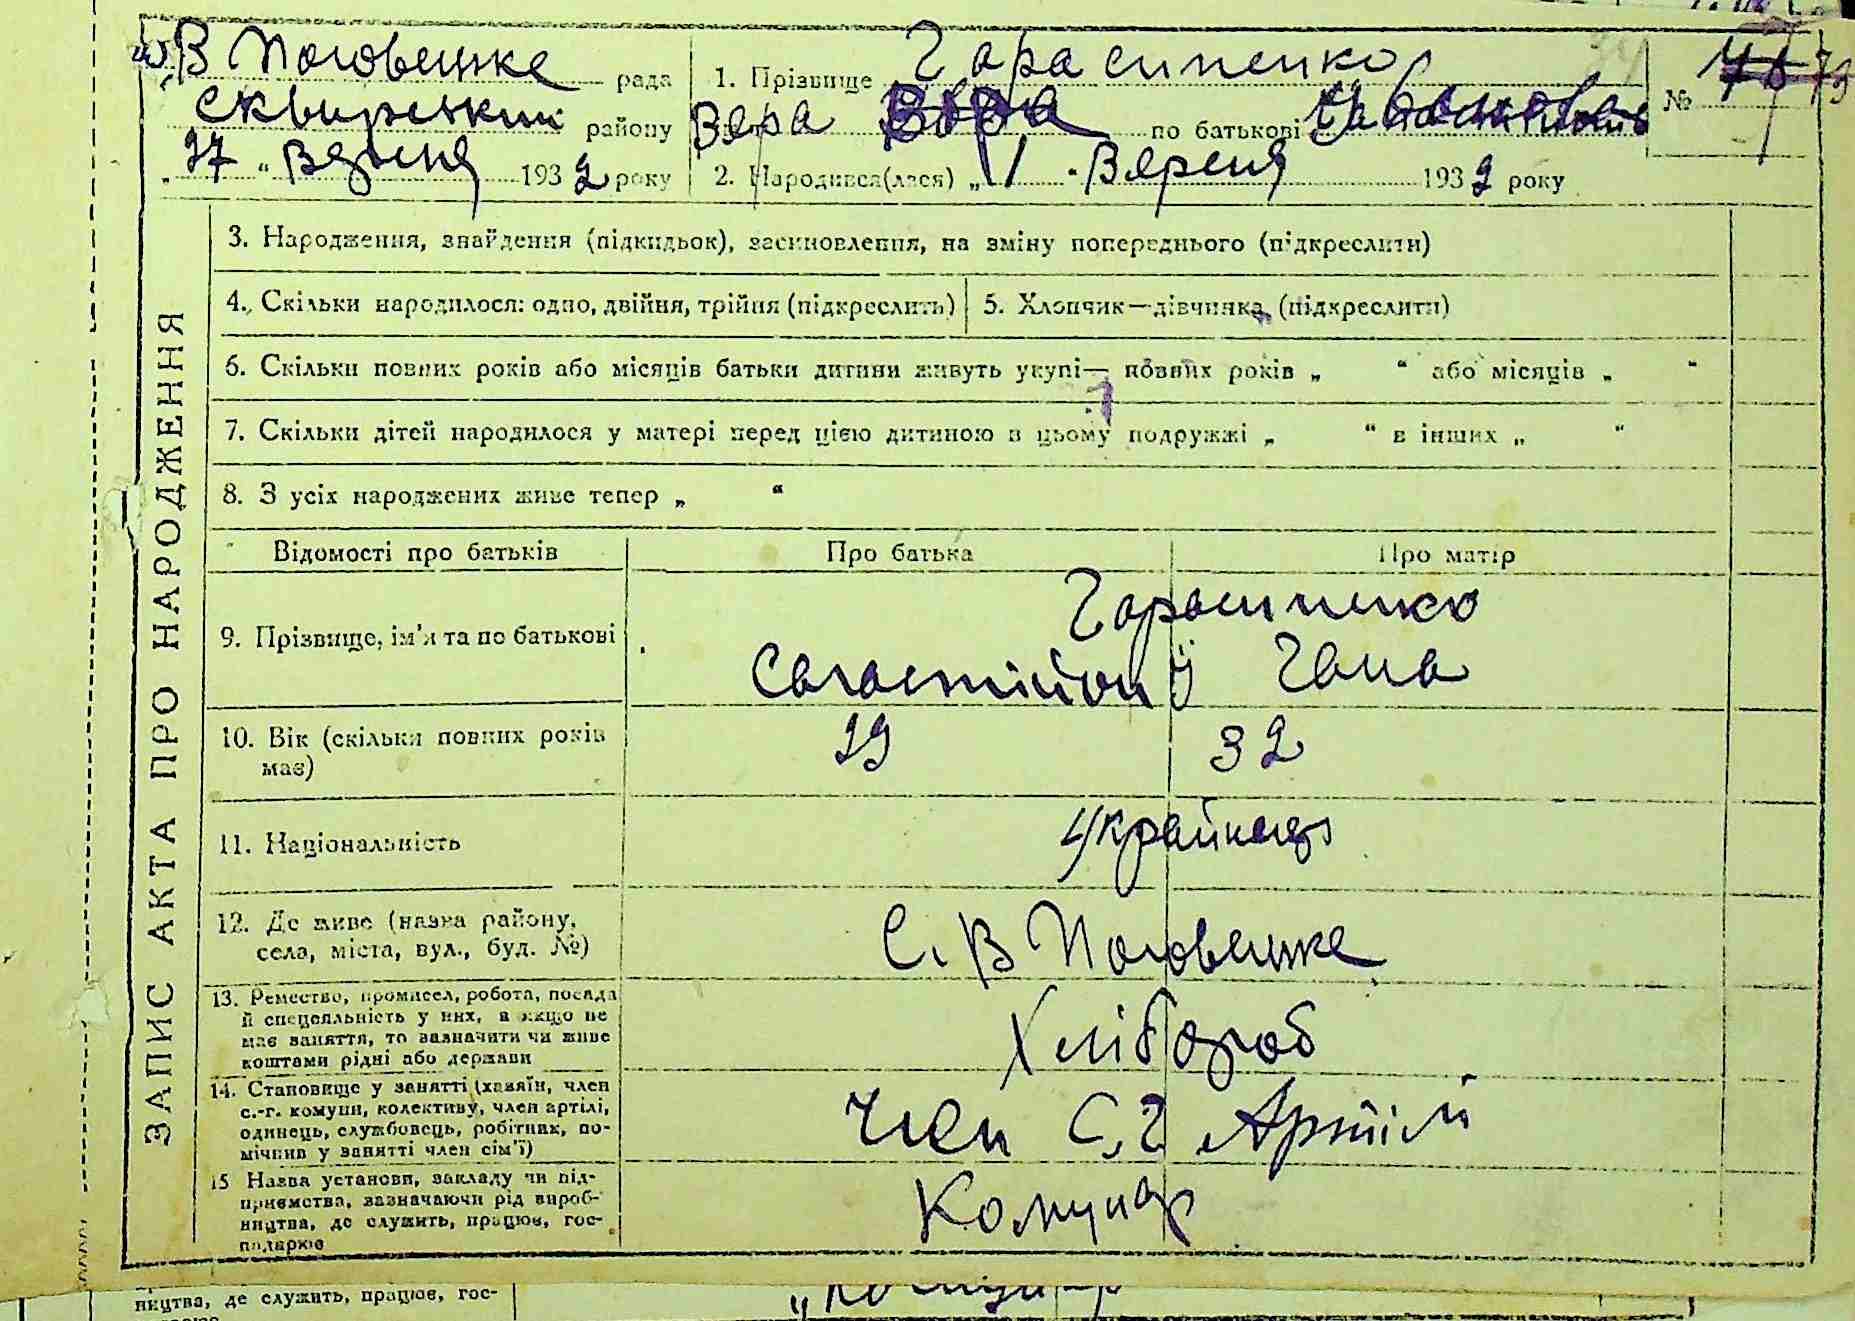 В Половецке рада
Сквирський району
„27“ Вересня 1932 року
1. Прізвище Гарасименко № 79
Вера по батькові
2. Народився(лася) „11“ Вересня 1932 року
ЗАПИС АКТА ПРО НАРОДЖЕННЯ
3. Народження, знайдення (підкидьок), всиновлення, на зміну попереднього (підкреслити)
4. Скільки народилося: одно, двійня, трійня (підкреслить)
5. Хлопчик—дівчинка (підкреслити)
6. Скільки повних років або місяців батьки дитини живуть укупі— повних років „ “ або місяців „ “
7. Скільки дітей народилося у матері перед цією дитиною в цьому подружжі „ “ в інших „ “
8. З усіх народжених живе тепер „ “
Відомості про батьків Про батька Про матір
9. Прізвище, ім’я та по батькові Гарасименко
Савастійон Й Гана
10. Вік (скільки повних років має) 29 32
11. Національність Україньця
12. Де живе (назва району,
села, міста, вул., буд. №) С. В Половецке
13. Ремество, промисел, робота, посада
й спецеяльність у них, а якщо не
має заняття, то зазначити чи живе
коштами рідні або держави Хлібороб
14. Становище у занятті (хазяїн, член
с.-г. комуни, колективу, член артілі,
одинець, службовець, робітник, по-
мічник у занятті член сім’ї) Член С,Г Артіли
15 Назва установи, закладу чи під-
приємства, зазначаючи рід вироб-
ництва, де служить, працює, гос-
подарює Комунар
ництва, де служить, працює, гос- „Комунар